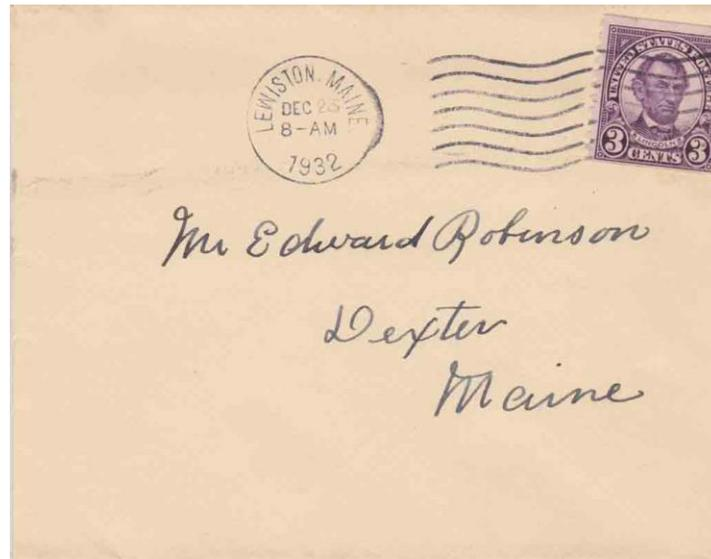 LEWISTON. MAINE
DEC 23
8-AM
1932
UNITED STATES POSTAGE
LINCOLN
3 CENTS 3
Mr Edward Robinson
Dexter
Maine